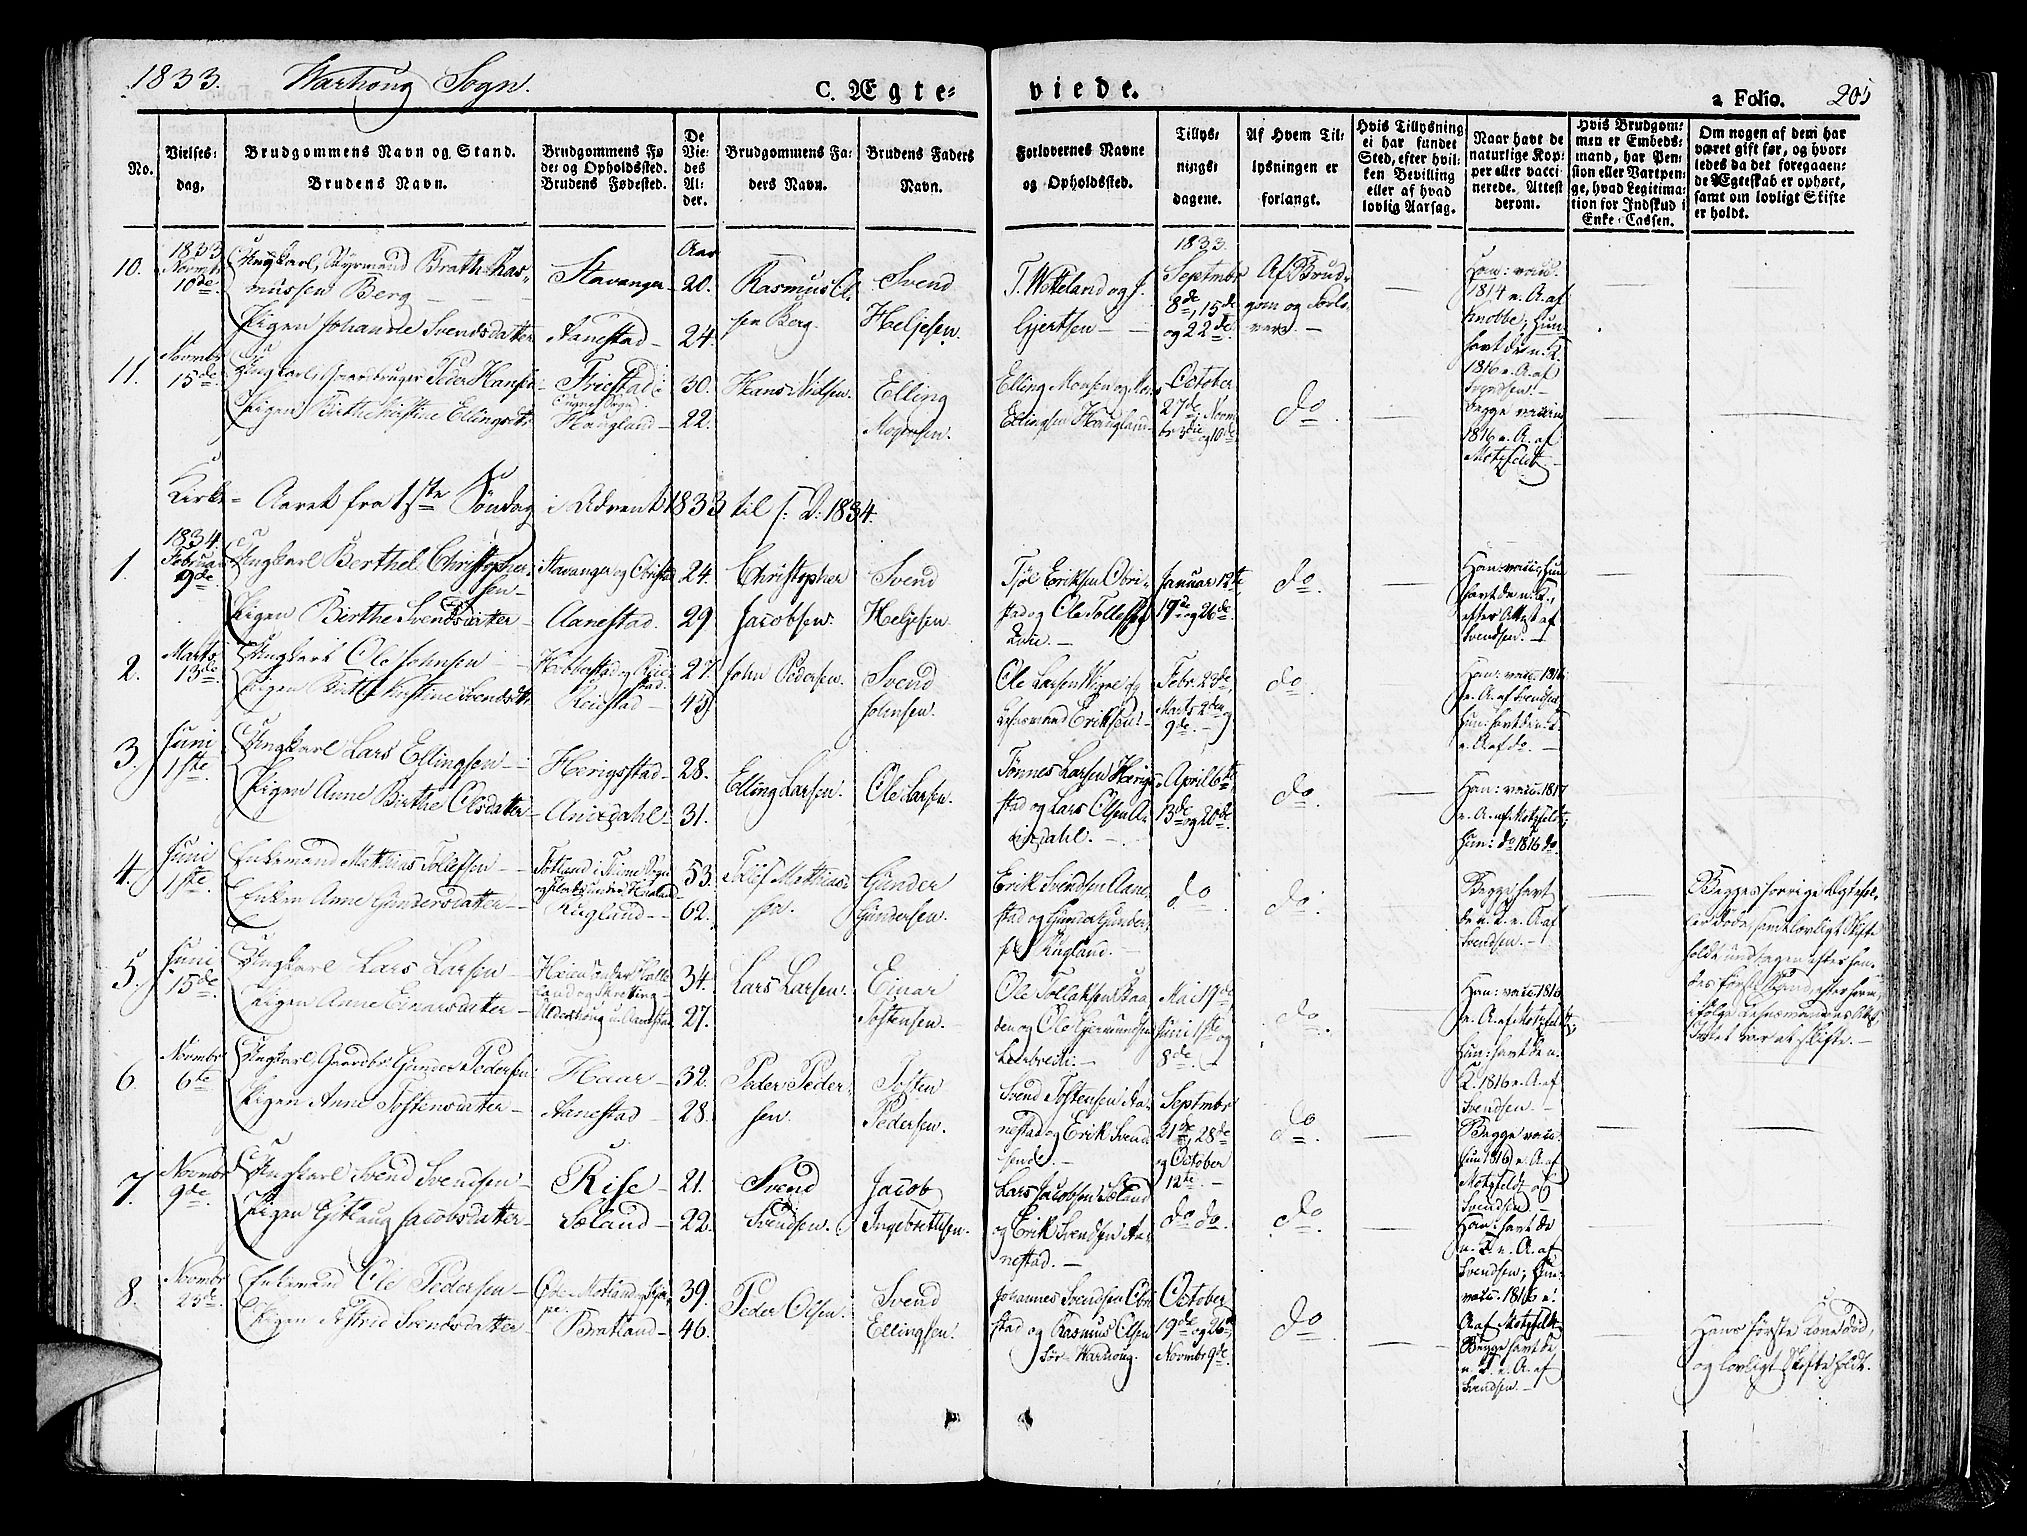 1833. Warhoug Sogn.
C. Ægte-
viede.
a Folio. 205
No.
Vielses-
dag.
Brudgommens Navn og Stand.
Brudens Navn.
Brudgommens Fø-
de- og Opholdssted.
Brudens Fødested.
De
Vie-
des
Al-
der.
Brudgommens Fa-
ders Navn.
Brudens Faders
Navn.
Forlovernes Navne
og Opholdssted.
Tillys-
nings-
dagene.
Af Hvem Til-
lysningen er
forlangt.
Hvis Tillysning
ei har fundet
Sted, efter hvil-
ken Bevilling
eller af hvad
lovlig Aarsag.
Naar havt de
naturlige Kop-
per eller vacci-
nerede. Attest
derom.
Hvis Brudgom-
men er Embeds-
mand, har Pen-
sion eller Vartpen-
ge, hvad Legitima-
tion for Indskud i
Enke-Cassen.
Om nogen af dem har
været gift før, og hvor-
ledes da det foregaaen-
de Ægteskab er ophørt,
samt om lovligt Skifte
er holdt.
10.
1833
Novmbr
10de
Ungkarl, Berg
Pigen Johanne Svendsdatter
Stavanger
Aanestad
Aar
20.
24.
Rasmus Ol-
sen Berg.
Svend
Heljesen.
T. Wetteland og J.
Gjertsen
1833.
Septmbr
8de, 15de
og 22de
Af Brud-
gom og Forlo-
vere
Han: vacc.
1814 e. A. af
Knobbe; Hun
havt de n. K.
1816 e. A. af
11.
Novmbr
15de
Ungkarl, Gaardbruger Peder Hansen
Pigen Birthe Kirstine Ellingsdtr
Friestad i
Haugland
30.
22.
Hans Nilsen.
Elling
Mogensen.
Elling Monsen og
Ellingsen Haugland
October
27de, Novm-
br 3die og 10de
do
Begge vaccin.
1816 e. A. af
Motzfeldt
Kirke-Aaret fra 1ste Søndag i Advent 1833 til s: D: 1834.
1.
1834
Februar
9de
Ungkarl Berthel Christopher-
sen
Pigen Birthe Svendsdatter
Stavanger og Obrestad
Aanestad.
24.
29
Christopher
Jacobsen.
Svend
Heljesen
Erichsen Obre-
stad og Ole Tollefsen
Januar 12te,
19de og 26de
do
Han: vacc., hun
havt de n. K.,
efter Attest af
Svendsen.
2.
Marts
13de
Ungkarl Ole Johnsen
Pigen Birthe Kirstine Svendsdtr
27.
45
John Pedersen.
Svend
Johnsen.
Ole Larsen Wigre og
Lehnsmand Eriksen
Febr. 23de,
Marts 2den og
9de
do
Han: vacc. 1816
e. A. af Svendsen
Hun: havt de n. K.
e. A. af do.
3.
Juni
1ste
Ungkarl Lars Ellingsen
Pigen Anne Birthe Olsdatter
Herigstad
Anisdahl
28.
31.
Elling Larsen.
Ole Larsen
Tønnes Larsen Herig-
stad og Lars Olsen A-
nisdahl.
April 6te,
13de og 20de
do
Han: vacc. 1817
e. A. af Motzfeldt;
Hun: do 1816 do.
4.
Juni
1ste
Enkemand Mathias Tollefsen
Enken Anne Gundersdatter
Fuglund
53.
62.
Tollef Mathias-
sen.
Gunder
Gundersen.
Erik Svendsen Aane-
stad og Gunder Gunder-
sen Fugland.
do
do
Begge havt
de n. K. e. A. af
Svendsen.
Begges forrige Ægtefæl-
ler døde, samt lovligt Skifte
holdt undtagen efter hen-
des første Mand, efter hvem,
ifølge Lehnsmandens Att.
Intet var at skifte.
5.
Juni
15de
Ungkarl Lars Larsen
Pigen Anne Einarsdatter
34.
27.
Lars Larsen.
Einar
Tostensen.
Ole Tollaksen Haa-
den og Ole Gjermundsen
Leebrecke.
Mai 19de,
Juni 1ste og
8de
do
Han: vacc. 1816
e. A. af Motzfeldt;
Hun: havt de n.
K. 1816 e. A. af
Svendsen.
6.
Novmbr
6te
Ungkarl Gaardbr. Gunder Pedersen
Pigen Anne Tostensdatter
Haar
Aanestad
32.
28.
Peder Peder-
sen.
Tosten
Pedersen.
Svend Tostensen Aa-
nestad og Erik Svend-
sen do.
Septmbr
21de, 28de
og October
12te.
do
Begge vacc.
hun 1816 e. A. af
Motzfeldt og
Svendsen
7.
Novmbr
9de
Ungkarl Svend Svendsen
Pigen Gitlaug Jacobsdatter
Rise
Sæland
21.
22.
Svend
Svendsen.
Jacob
Ingebretsen.
Lars Jacobsen Sæland
og Erik Svendsen Aa-
nestad.
do do.
do
Han: havt de
n. K. e. A. af
Svendsen; Hun-
vacc. 1816 e.
A. af Motzfeldt
8.
Novmbr
23de
Enkemand Ole Pedersen
Pigen Astrid Svendsdatter
Bratland
39.
46.
Peder Olsen.
Svend
Ellingsen.
Johannes Svendsen Obre-
stad og Rasmus Olsen
Sør-Warhoug.
October
19de og 26de
Novmbr 9de.
do
Begge havt de
n. K. e. A. af
Svendsen.
Hans første Kone død,
og lovligt Skifte holdt.